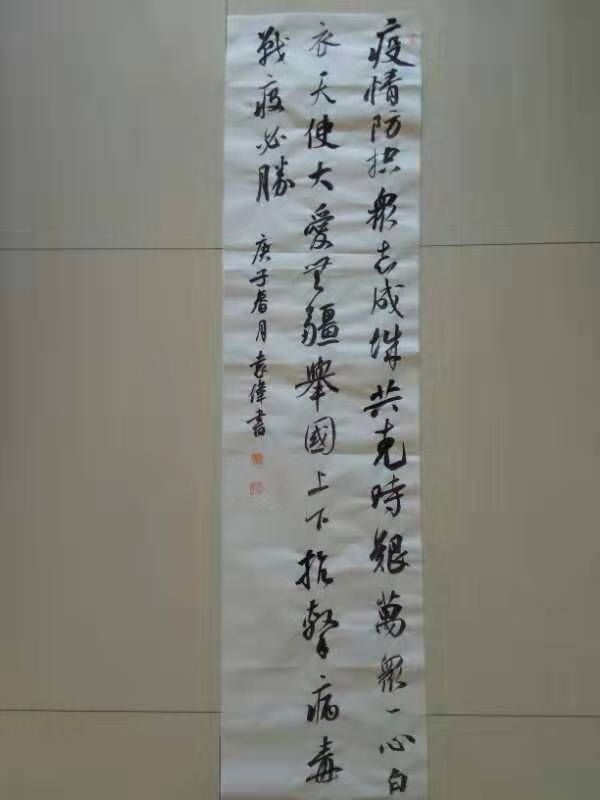 疫情防控眾志成城共克時艱萬眾一心白
衣天使大愛無疆舉國上下抗擊病毒
戰疫必勝
庚子春月袁偉書